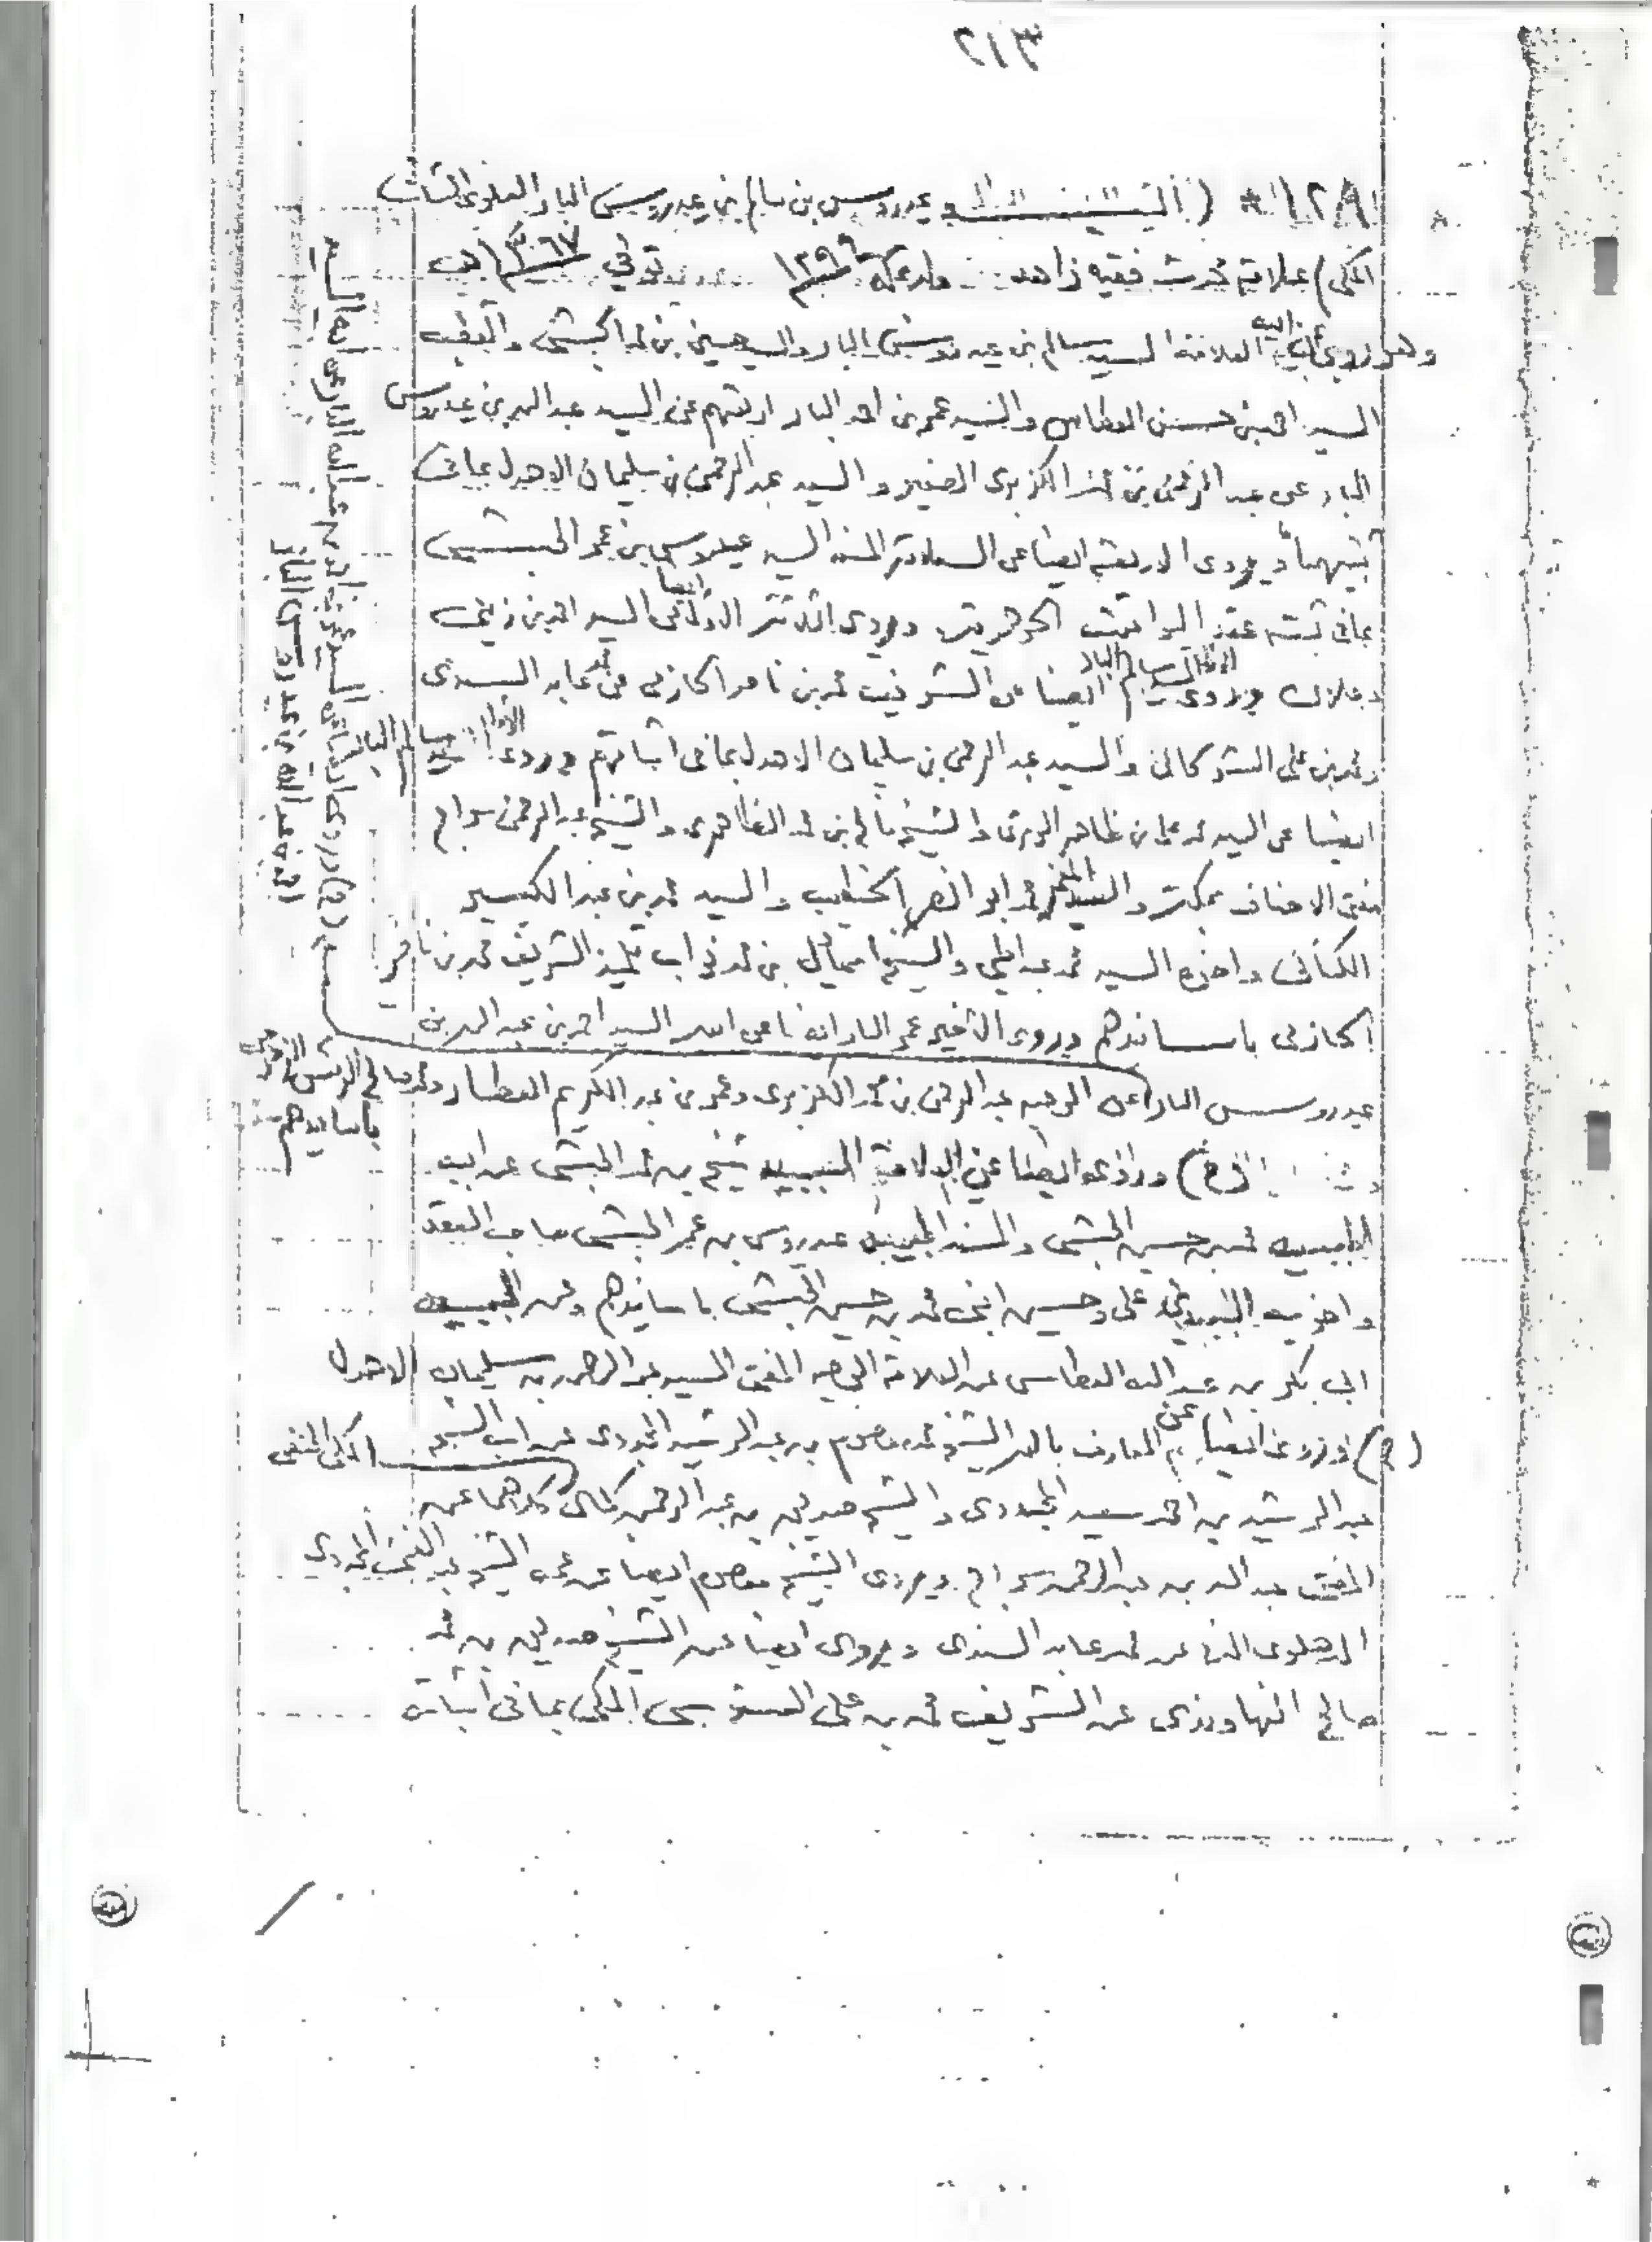 ٢١٣
١٢٨١ * ( السيد عيدروس بن سالم بن عيدروس البار العلوي الشافعي
المكي) علامة محدث فقيه زاهد ولد بمكة ١٢٩٩ توفي ١٣٦٧
وهو يروي عن ابيه العلامة السيد سالم بن عيدروس البار والسيد حسين بن محمد الحبشي والقطب
السيد احمد بن حسن العطاس والسيد عمر بن احمد البار اربعتهم عن السيد عبد الله بن عيدروس
البار عن عبد الرحمن بن محمد الكزبري الصغير والسيد عبد الرحمن بن سليمان الاهدل بما في
ثبتيهما ويروي الاربعة ايضا عن العلامة المسند السيد عيدروس بن عمر الحبشي
بما في ثبته عقد اليواقيت الجوهرية ويروي الثلاثة الاول ايضا عن السيد احمد بن زيني
دحلان ويروي سالم البار ايضا عن الشريف محمد بن ناصر الحازمي عن محمد عابد السندي
ومحمد بن علي الشوكاني والسيد عبد الرحمن بن سليمان الاهدل بما في اثباتهم ويروي الاول سالم البار
ايضا عن السيد محمد علي بن ظاهر الوتري والشيخ فالح بن محمد الظاهري والشيخ عبد الرحمن سراج
مفتي الاحناف بمكة والشيخ محمد ابو النصر الخطيب والسيد محمد بن عبد الكبير
الكتاني واخوه السيد محمد عبد الحي والشيخ اسماعيل بن محمد نواب تلميذ الشريف محمد بن ناصر
الحازمي باسانيدهم ويروي الاخير عمر البار ايضا عن السيد احمد بن عبد الله بن
عيدروس البار عن الوجيه عبد الرحمن بن محمد الكزبري وعمر بن عبد الكريم العطار ومحمد صالح الريس الزمزمي
باسانيدهم
(ح) وروى ايضا عن العلامة الحبيب شيخ بن محمد الحبشي عن ابيه
الحبيب محمد بن حسين الحبشي والمسند الحبيب عيدروس بن عمر الحبشي صاحب العقد
واخويه علي وحسين ابني محمد بن حسين الحبشي باسانيدهم وعن الحبيب
ابي بكر بن عبد الله العطاس عن العلامة الوجيه المفتي السيد عبد الرحمن بن سليمان الاهدل
(ح) وروى ايضا عن العارف بالله الشيخ محمد معصوم بن عبد الرشيد المجددي عن ابيه الشيخ
عبد الرشيد بن احمد سعيد المجددي والشيخ صديق بن عبد الرحمن كمال المكي الحنفي كلاهما عن
المفتي عبد الله بن عبد الرحمن سراج ويروي الشيخ معصوم ايضا عن الشيخ عبد الغني المجددي
الدهلوي المدني عن محمد عابد السندي ويروي ايضا عن الشيخ صديق بن محمد
صالح النهاوندي عن الشريف محمد بن علي السنوسي المكي بما في اثباته
(ح) وروى ايضا عن السيد عمر بن سالم عن السيد
ابن عبد الله بن عيدروس البار